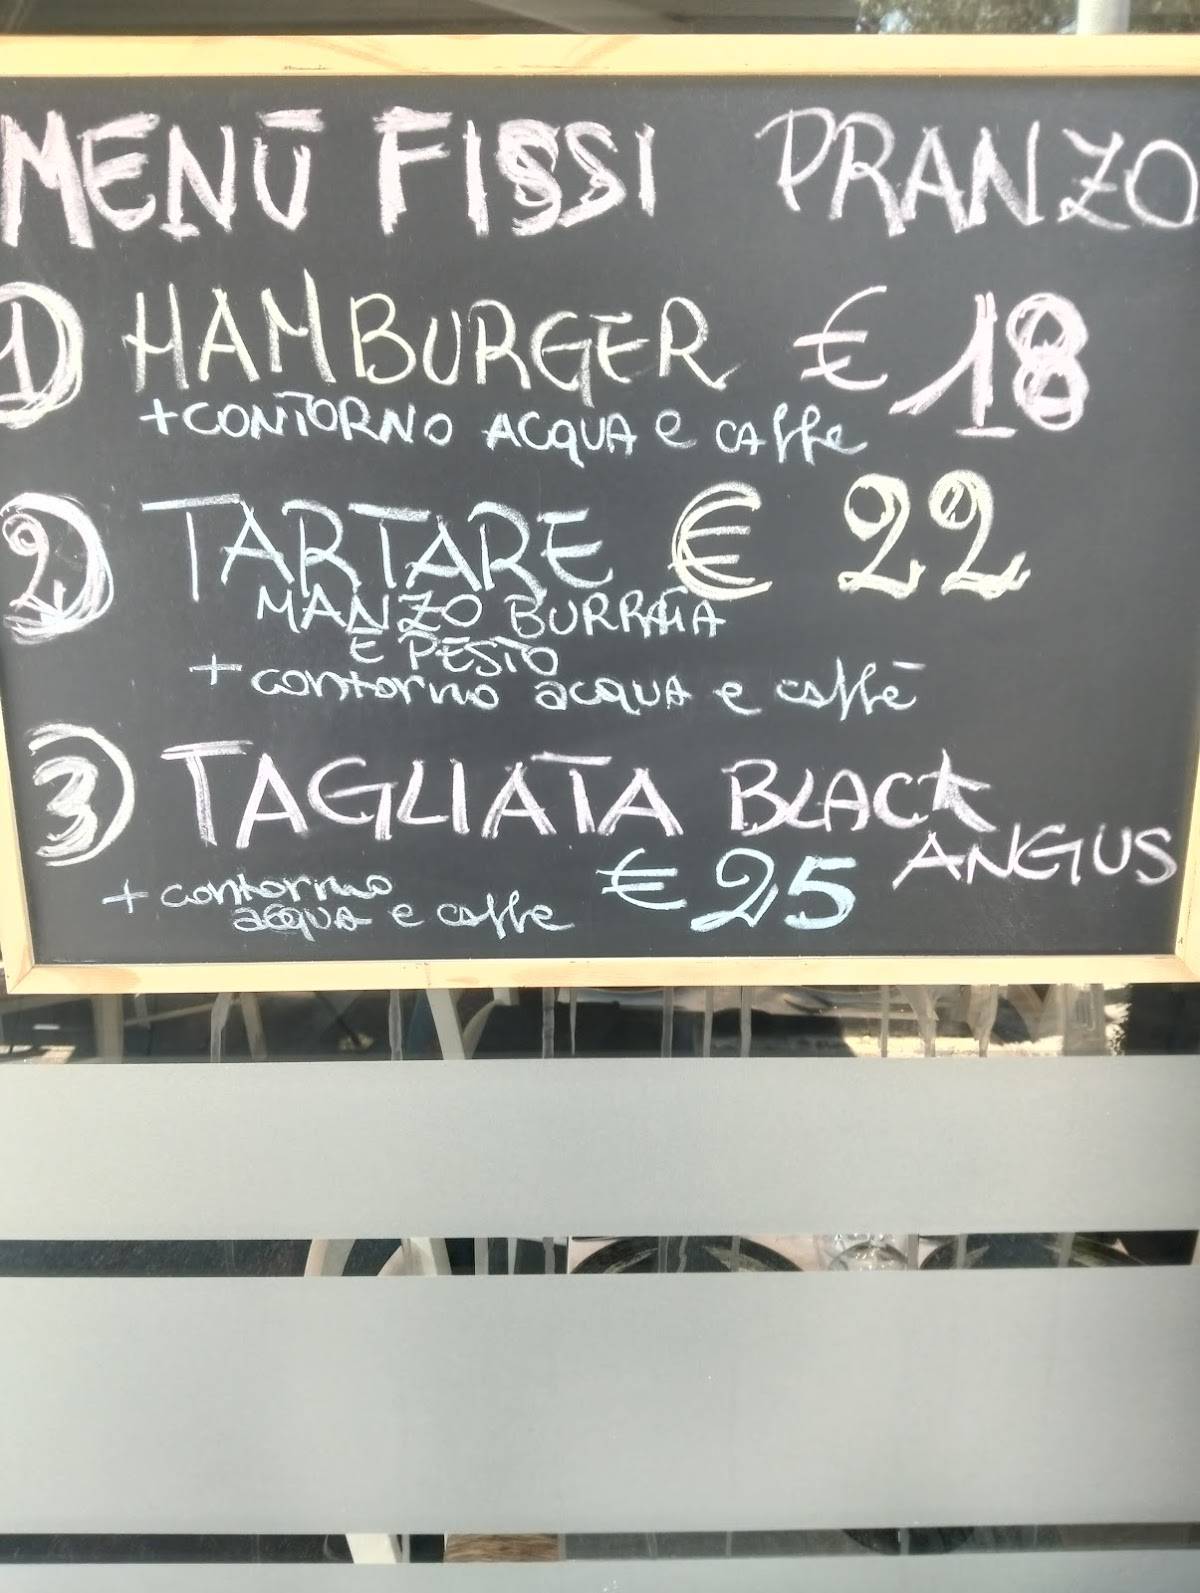 MENÙ FISSI PRANZO
1 HAMBURGER € 18
+ CONTORNO ACQUA e CAffe
2 TARTARE € 22
MANZO BURRATA
E PESTO
+ contorno acqua e caffè
3 TAGLIATA BLACK
ANGUS
+ contorno € 25
acqua e caffe